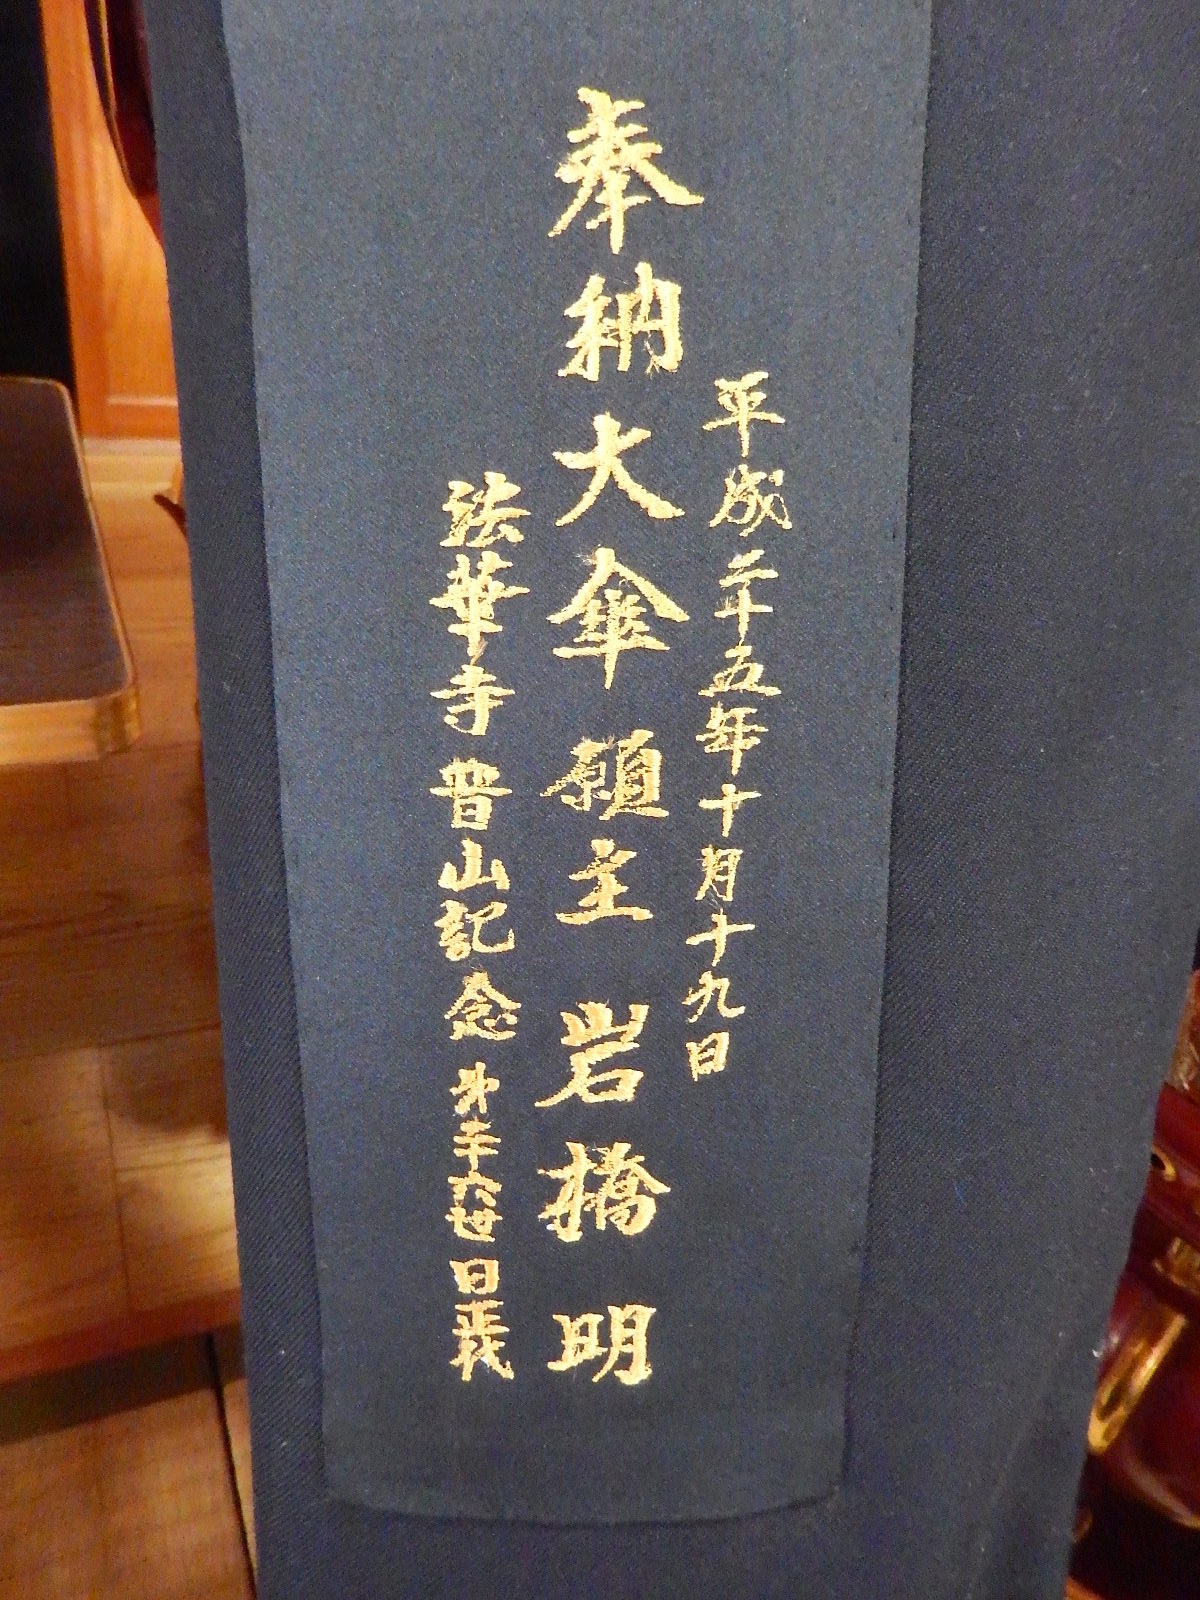 平成二十五年十月十九日
奉納大傘 願主 岩橋 明
法華寺 晋山記念 第二十六世 日義